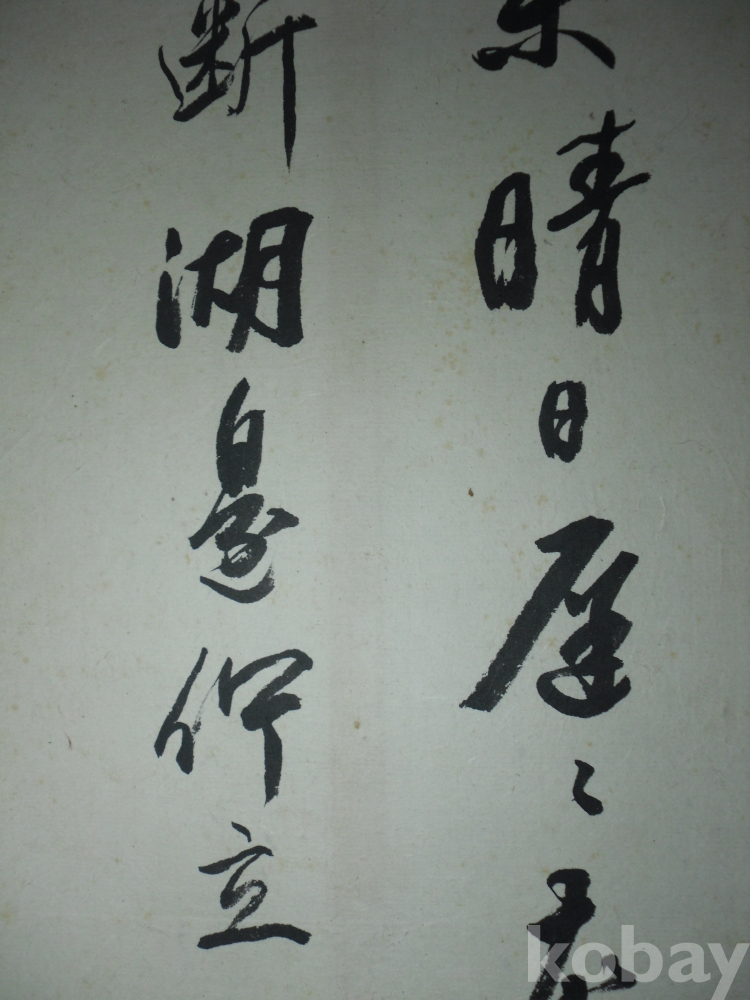 晴日遲〻
斷湖邊佇立
kobay